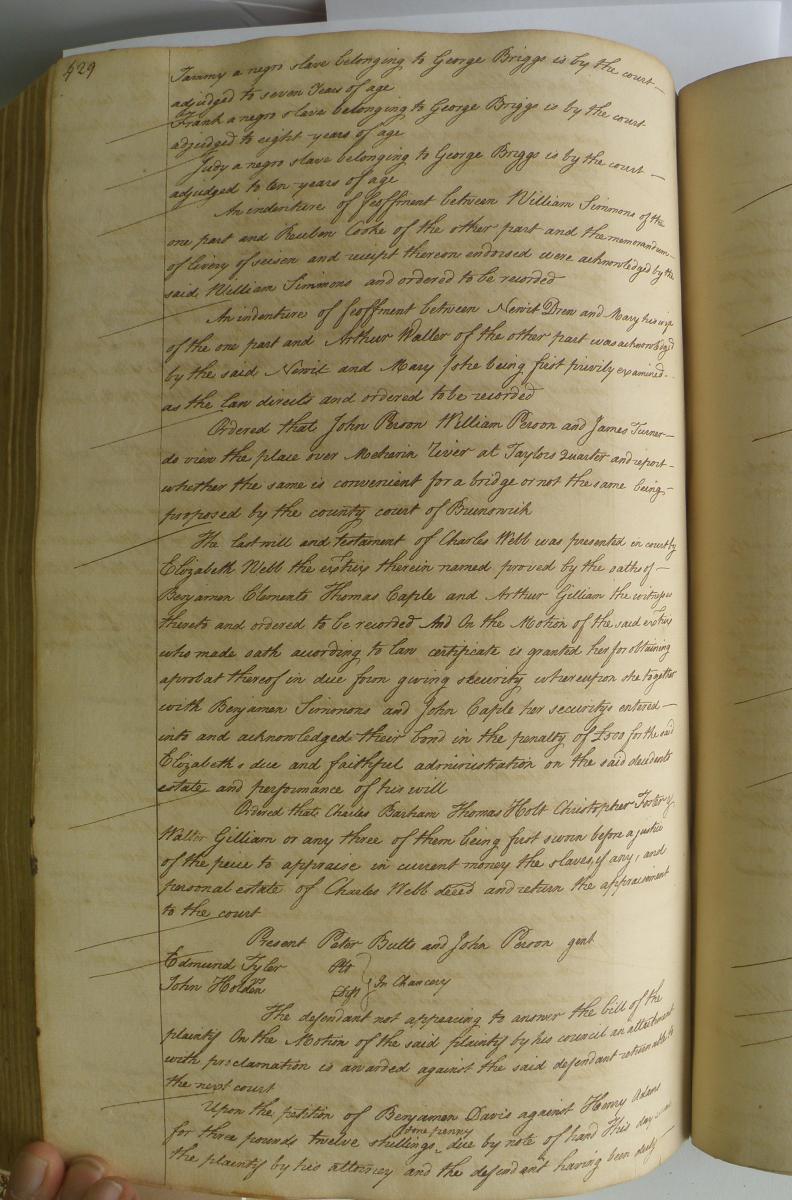 529
Tammy a negro slave belonging to George Briggs is by the court
adjudged to seven Years of age
Frank a negro slave belonging to George Briggs is by the court
adjudged to eight years of age
Judy a negro slave belonging to George Briggs is by the court
adjudged to ten years of age
An indenture of feoffment between William Simmons of the
one part and Reuben Cooke of the other part and the memorandum
of livery of seisen and reciept thereon endorsed were acknowledged by the
said William Simmons and ordered to be recorded
An indenture of feoffment between Newit Drew and Mary his wife
of the one part and Arthur Waller of the other part was acknowledged
by the said Newit and Mary she being first privily examined
as the law directs and ordered to be recorded
Ordered that John Person William Person and James Turner
do view the place over Meherin River at Taylors quarter and report
whether the same is convenient for a bridge or not the same being
proposed by the county court of Brunswick
The last will and testament of Charles Webb was presented in court by
Elizabeth Webb the extrix therein named proved by the oaths of
Benjamen Clements Thomas Caple and Arthur Gilliam the witnesses
thereto and ordered to be recorded And On the Motion of the said extrix
who made oath acording to law certificate is granted her for obtaining
a probat thereof in due form giving security whereupon she together
with Benjamen Simmons and John Caple her securitys entered
into and acknowledged their bond in the penalty of £500 for the said
Elizabeths due and faithful administration on the said decedents
estate and performance of his will
Ordered that Charles Barham Thomas Holt Christopher Foster &
Walter Gilliam or any three of them being first sworn before a justice
of the peice to appraise in current money the slaves, if any, and
personal estate of Charles Webb deced and return the appraisment
to the court
Present Peter Butts and John Person gent
Edmund Tyler Plt
John Holden Deft } In Chancery
The defendant not appearing to answer the bill of the
plaintif On the Motion of the said plaintif by his council an attachment
with proclamation is awarded against the said defendant returnable to
the next court
Upon the petition of Benjamen Davis against Henry Adams
for three pounds twelve shillings one penny due by note of hand This day came
the plaintif by his attorney and the defendant having been duly